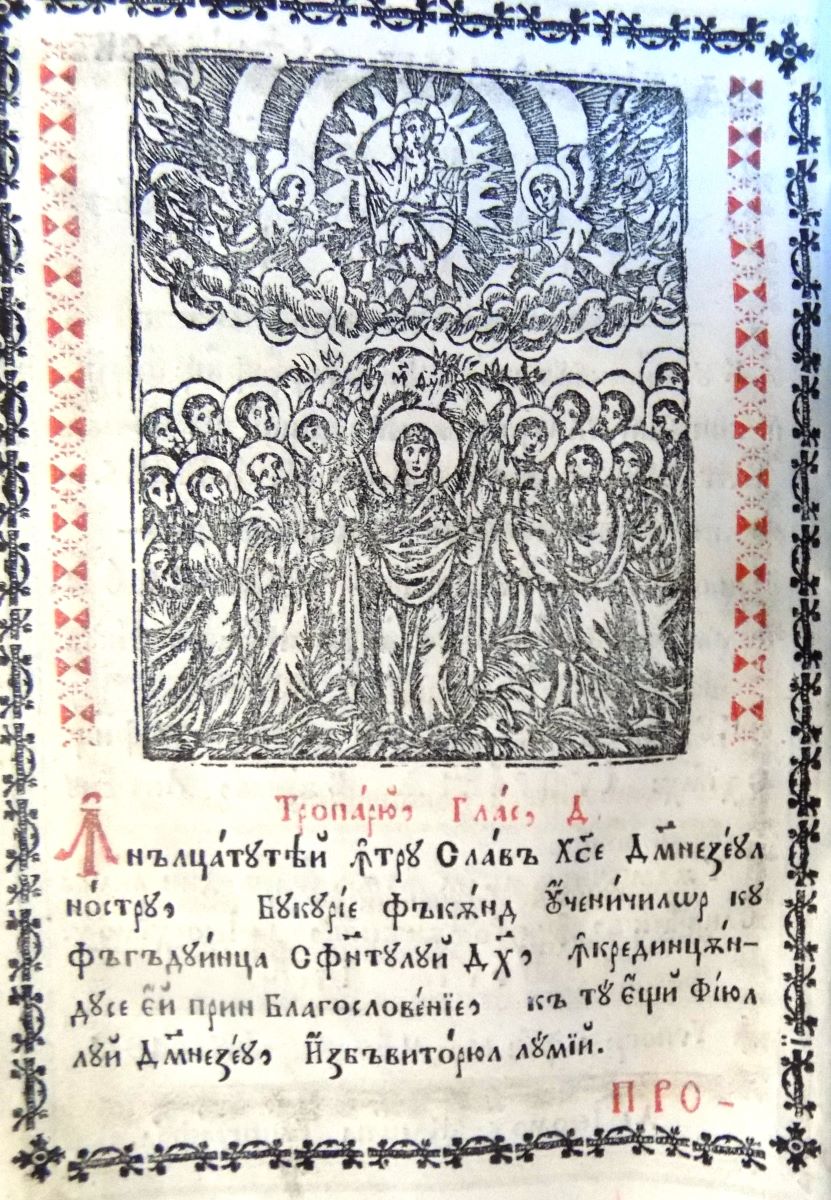 Тропа́рю҆, Гла́с, Д҃.
А҆нълца́тутѣй ꙟ҆тру Сла́въ Хс҃е Дм҃незе́ул
но́стру, Букурі́е фъкѫ́нд ᲂу҆чени́чилѡр ку
фъгъдуи́нца Сфн҃тулуй Дх҃, ꙟ҆крединцѫ́н-
дусе є҆́й прин Благослове́нїе, къ ту є҆́щй Фі́юл
луй Дм҃незе́у, И҆збъвито́рюл лу́мїй.
ПРО-